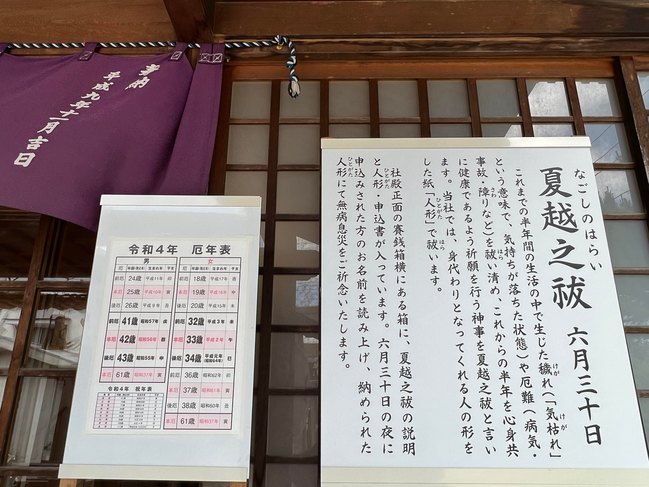 奉納
平成九年十一月吉日
令和4年 厄年表
男 女
前厄 24歳 平成11年 卯
本厄 25歳 平成10年 寅
後厄 26歳 平成9年 丑
前厄 41歳 昭和57年 戌
本厄 42歳 昭和56年 酉
後厄 43歳 昭和55年 申
本厄 61歳 昭和37年 寅
前厄 18歳 平成17年 酉
本厄 19歳 平成16年 申
後厄 20歳 平成15年 未
前厄 32歳 平成3年 未
本厄 33歳 平成2年 午
後厄 34歳 平成元年(昭和64年) 巳
前厄 36歳 昭和62年 卯
本厄 37歳 昭和61年 寅
後厄 38歳 昭和60年 丑
本厄 61歳 昭和37年 寅
令和4年 祝年表
なごしのはらい
夏越之祓 六月三十日
これまでの半年間の生活の中で生じた穢れ(「気枯れ」
という意味で、気持ちが落ちた状態)や厄難(病気・
事故、障りなど)を祓い清め、これからの半年を心身共
に健康であるよう祈願を行う神事を夏越之祓と言い
ます。当社では、身代わりとなってくれる人の形を
した紙「人形」で祓います。
社殿正面の賽銭箱横にある箱に、夏越之祓の説明
と人形、申込書が入っています。六月三十日の夜に
申込みされた方のお名前を読み上げ、納められた
人形にて無病息災をご祈念いたします。